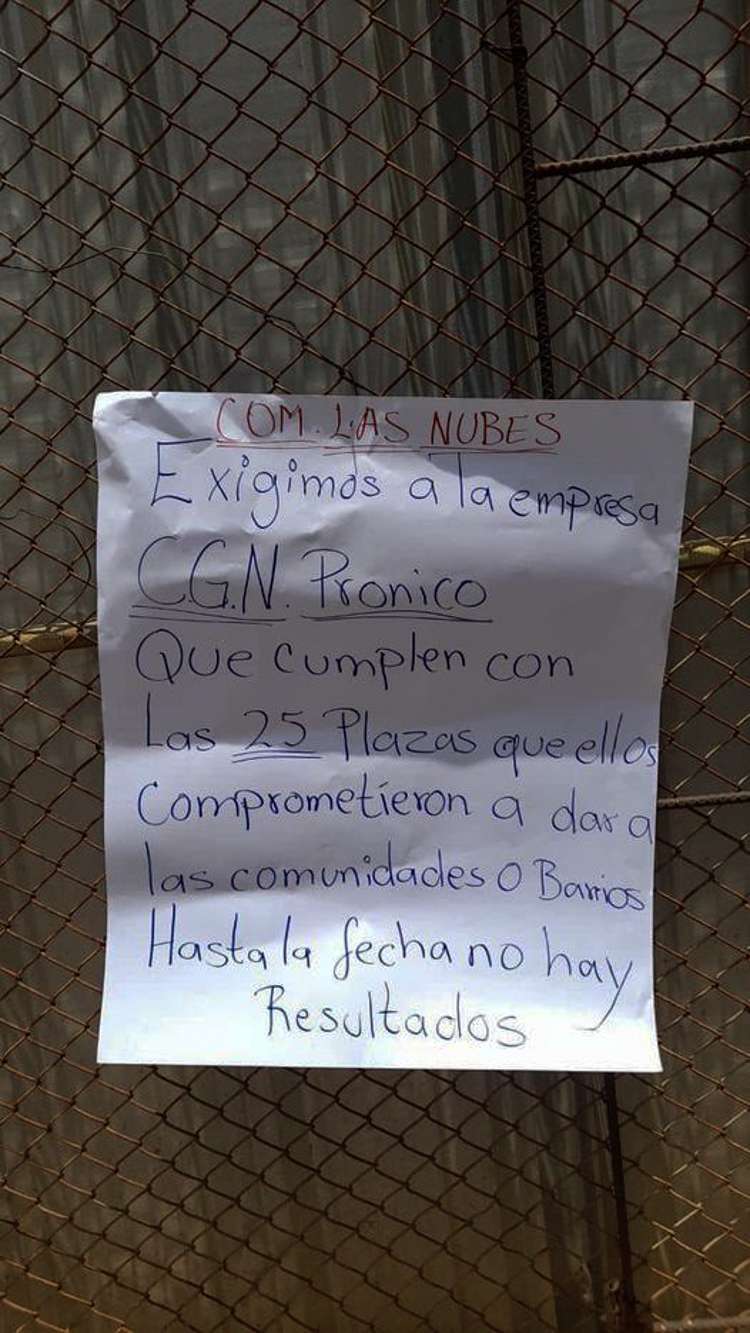 COM. LAS NUBES
Exigimos a la empresa
C.G.N. Pronico
Que cumplen con
Las 25 Plazas que ellos
Comprometieron a dar a
las comunidades o Barrios
Hasta la fecha no hay
Resultados